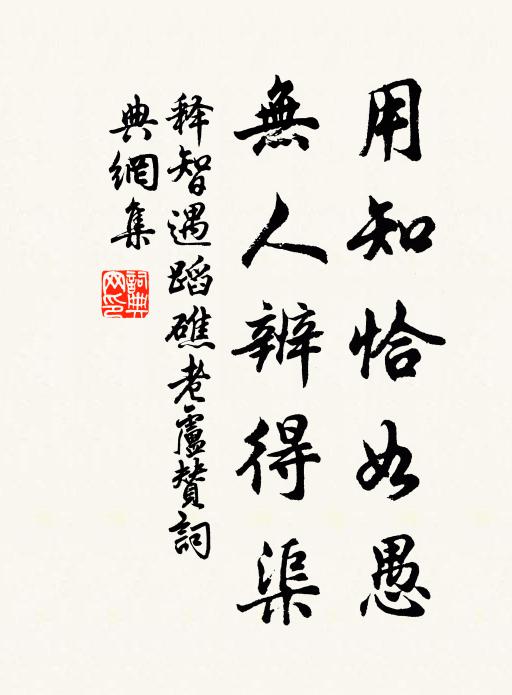 用知恰如愚
無人辨得渠
释智遇蹈礁老盧贊詞
典網集
詞典網印